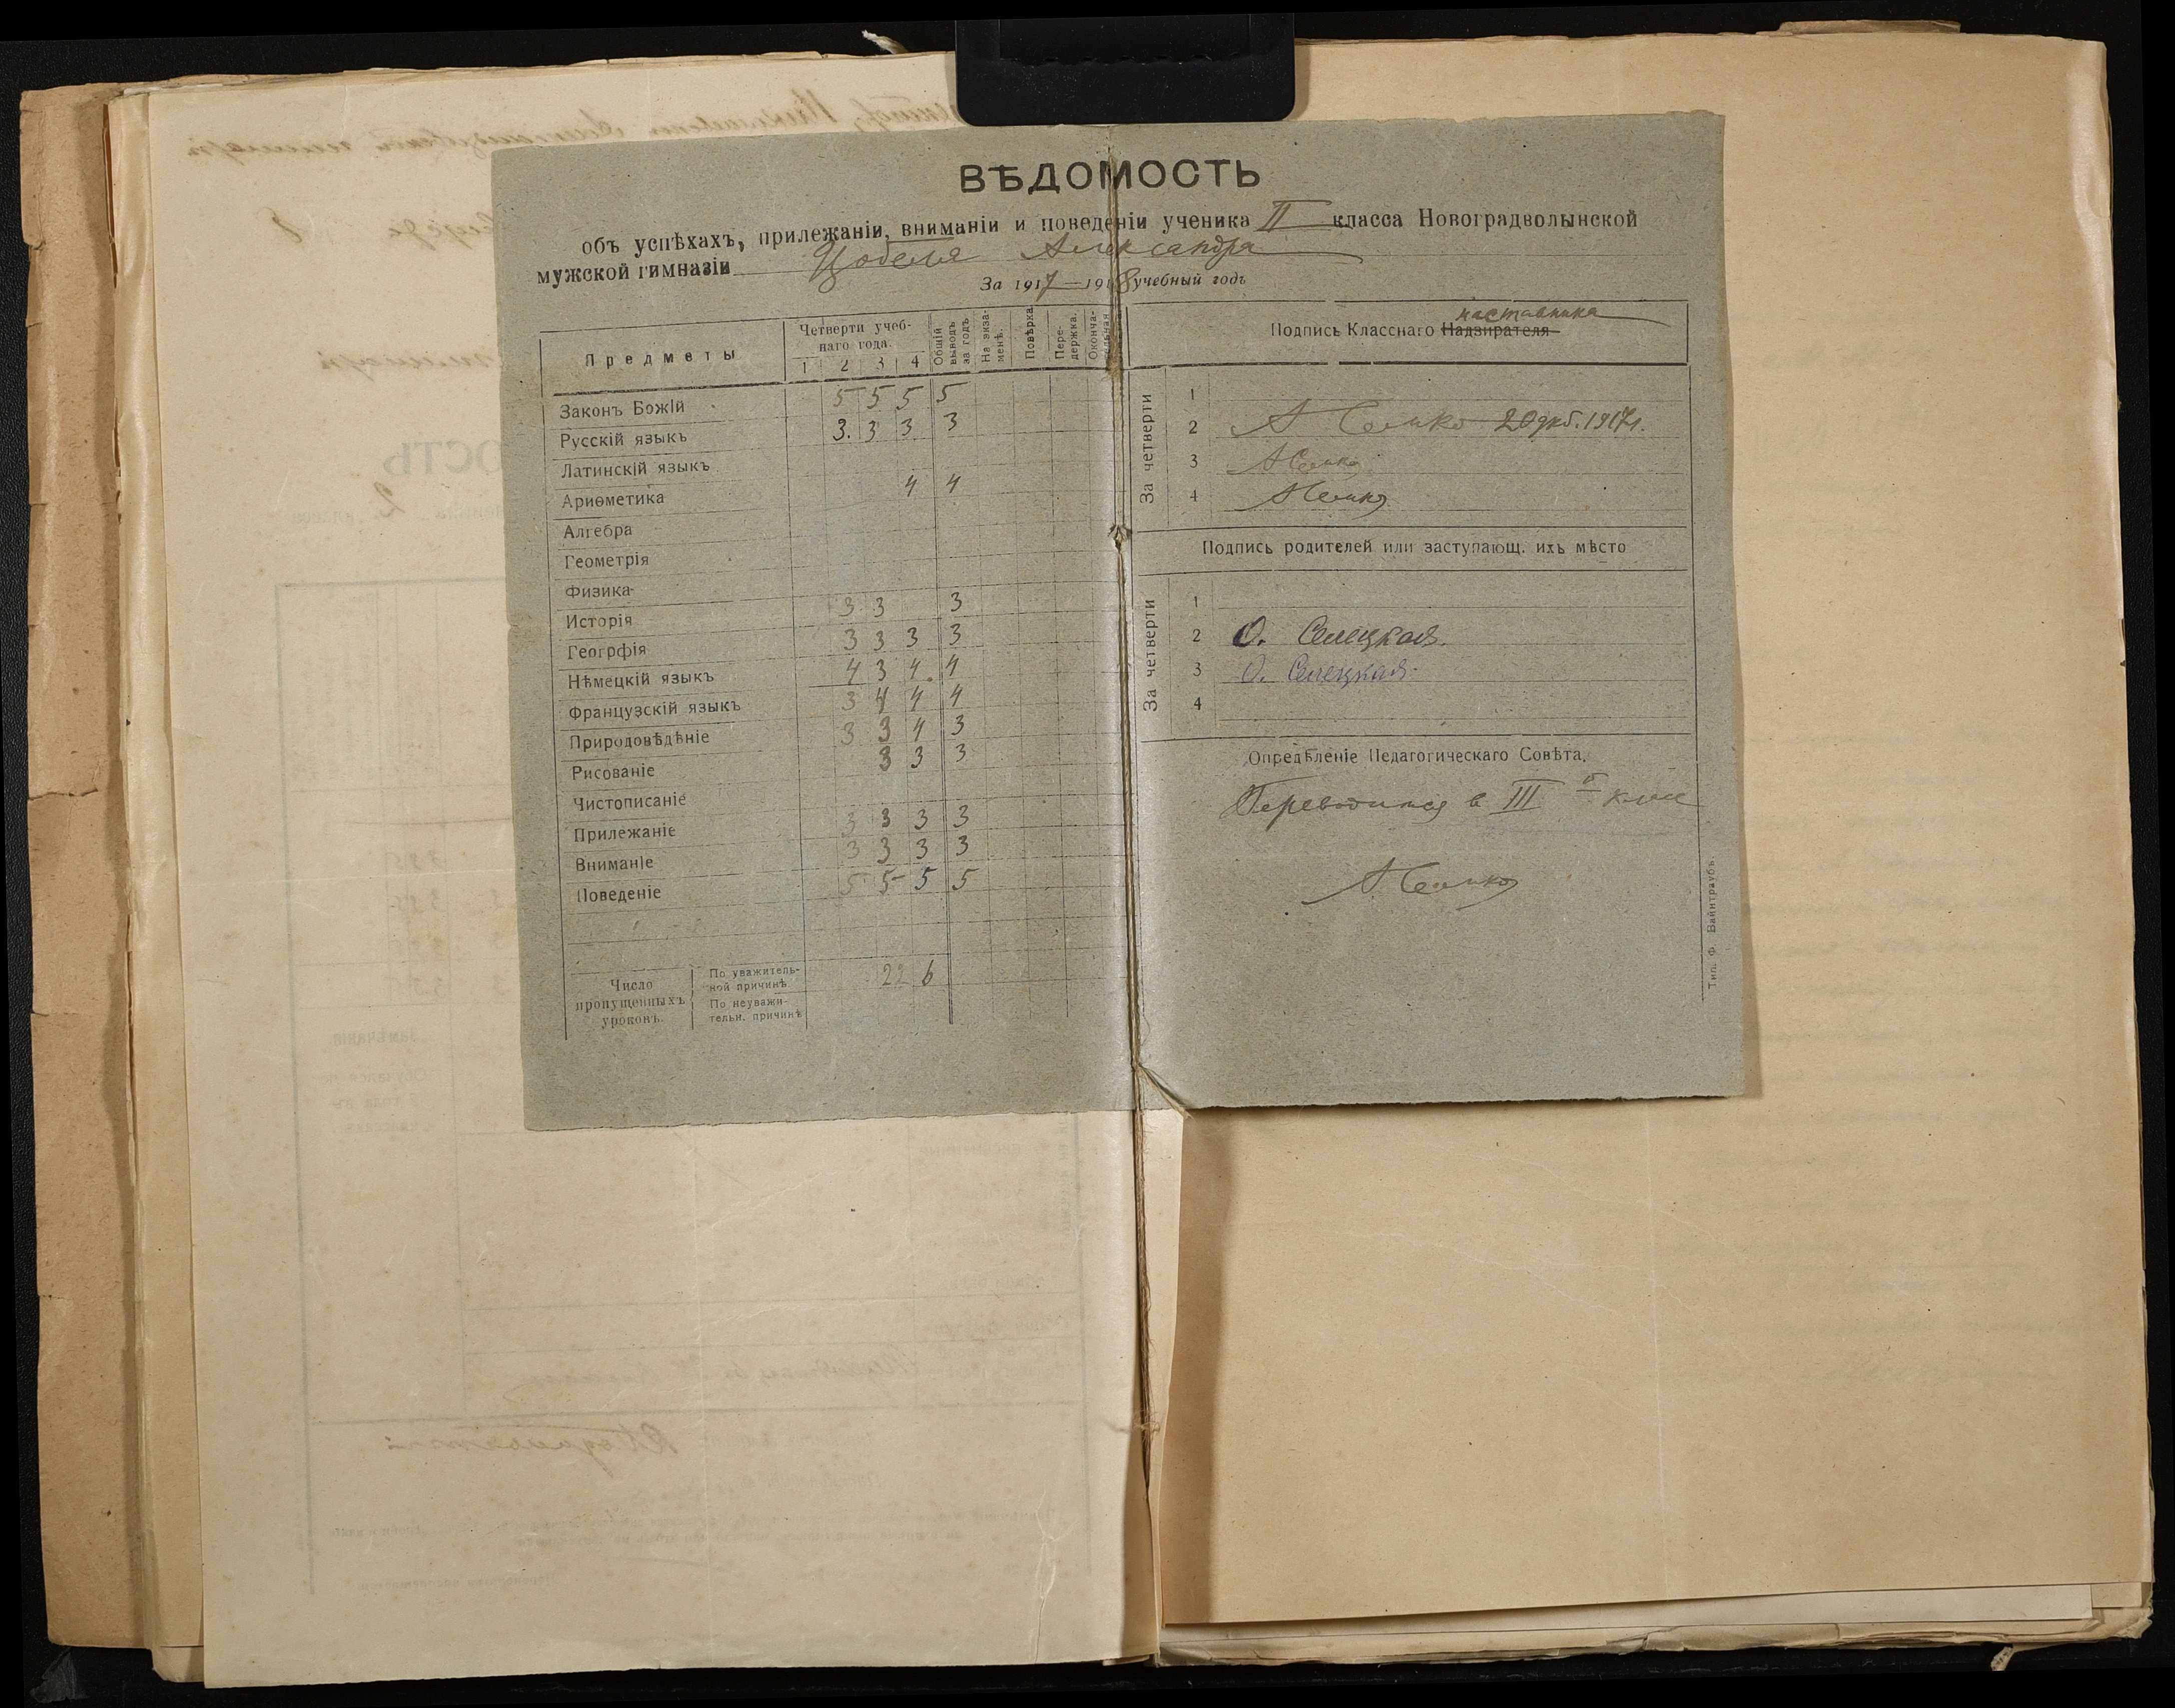 ВѢДОМОСТЬ
объ успѣхахъ, прилежаніи, вниманіи и поведеніи ученика II класса Новоградволынской
мужской гимназіи Цобеля Александра
За 1917—1918 учебный годъ
Предметы
Четверти учеб-
наго года.
1 2 3 4
Общій
выводъ
за годъ
На экза-
менѣ.
Повѣрка
Пере-
держка.
Оконча-
тельная
Законъ Божій 5 5 5 5
Русскій языкъ 3. 3 3 3
Латинскій языкъ
Ариѳметика 4 4
Алгебра
Геометрія
Физика
Исторія 3 3 3
Геогрфія 3 3 3 3
Нѣмецкій языкъ 4 3 4 4
Французскій языкъ 3 4 4 4
Природовѣдѣніе 3 3 4 3
Рисованіе 3 3 3
Чистописаніе
Прилежаніе 3 3 3 3
Вниманіе 3 3 3 3
Поведеніе 5 5 5 5
Число
пропущенныхъ
уроковъ.
По уважитель-
ной причинѣ 22 6
По неуважи-
тельн. причинѣ
наставника
Подпись Класснаго Надзирателя
За четверти
1
2 20 дкб. 1917 г.
3
4
Подпись родителей или заступающ. ихъ мѣсто
За четверти
1
2 О. Селецкая.
3 О. Селецкая.
4
Опредѣленіе Педагогическаго Совѣта.
Переводится в III класс
Тип. Ф. Вайнтраубъ.